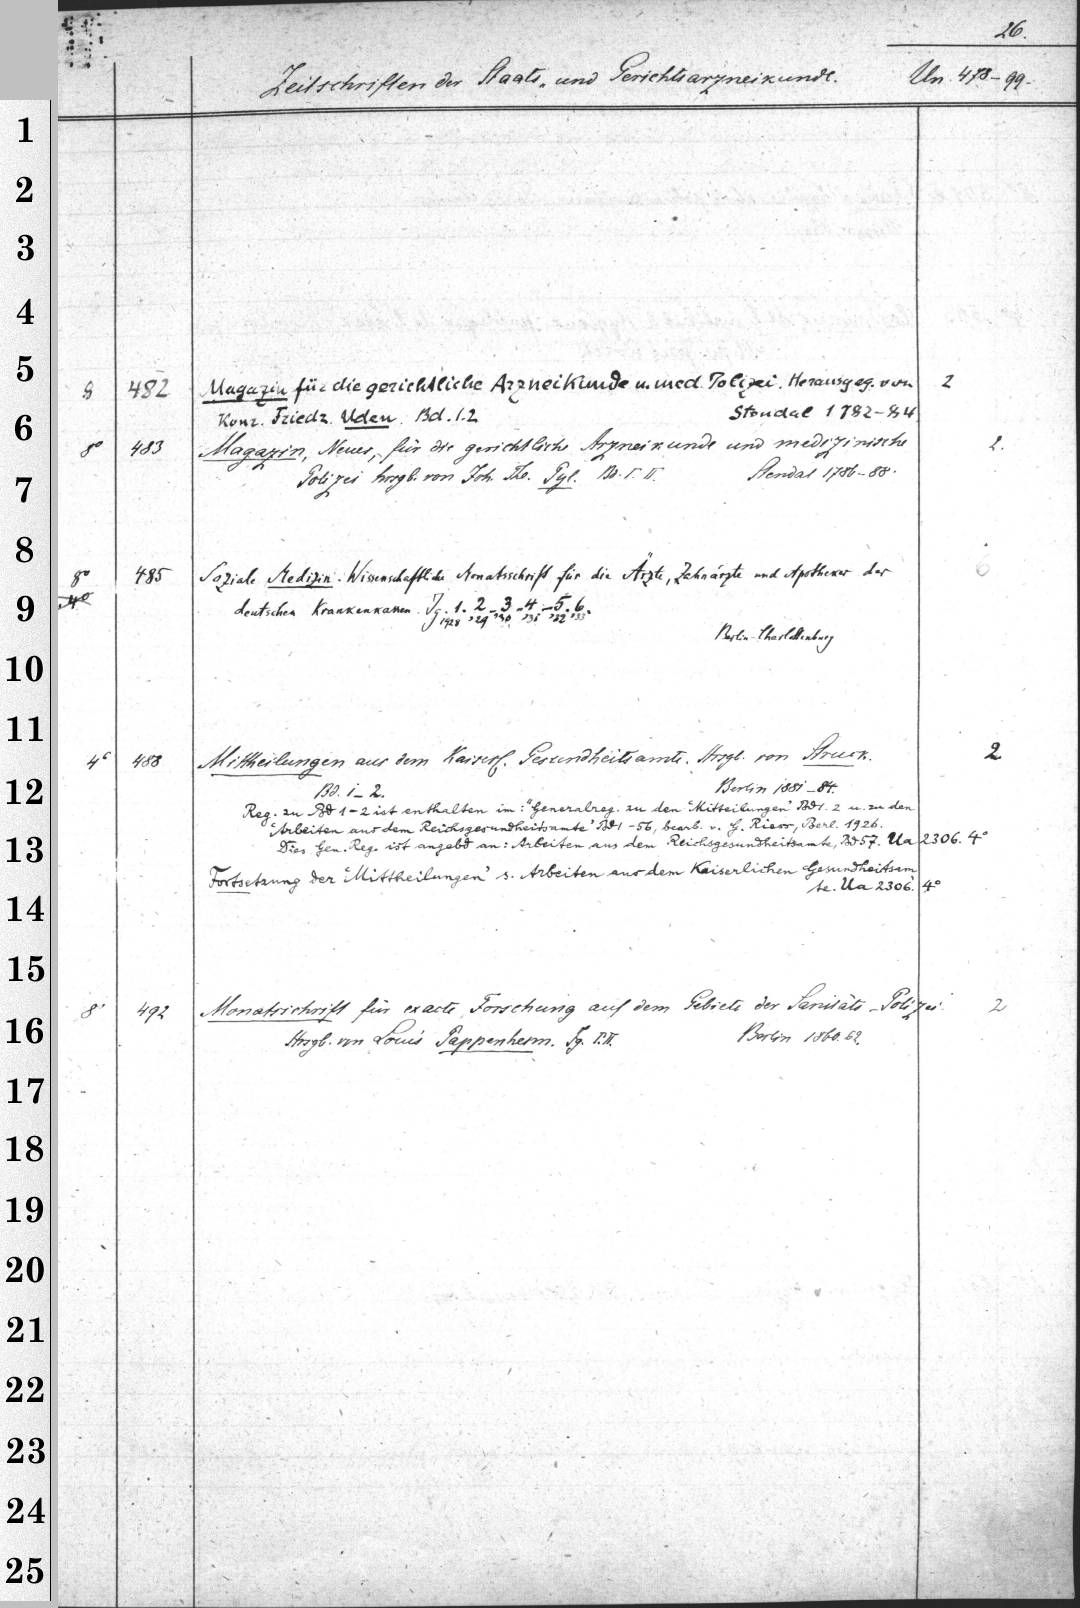 26.
Zeitschriften der Staats- und Gerichtsarzneikunde. Un. 478-99.
1
2
3
4
5
8 482 Magazin für die gerichtliche Arzneikunde u. med. Polizei. Herausgeg. von 2
6
Konr. Friedr. Uden. Bd. 1.2 Stendal 1782-84
8° 483 Magazin, Neues, für die gerichtliche Arzneikunde und medizinische 2.
7
Polizei hrsgb. von Joh. Th. Pyl. Bd. I. II. Stendal 1786-88.
8
8° 485 Soziale Medizin. Wissenschaftliche Monatsschrift für die Ärzte, Zahnärzte und Apotheker der 6
9
4° deutschen Krankenkassen. Jg. 1. 2 - 3 - 4 - 5. 6.
1928 '29 '30 '31 '32 '33
Berlin-Charlottenburg
10
11
4° 488 Mittheilungen aus dem Kaiserl. Gesundheitsamte. Hrsgb. von Struck. 2
12
Bd. 1-2. Berlin 1881-84.
Reg. zu Bd 1-2 ist enthalten im: "Generalreg. zu den "Mitteilungen" Bd 1. 2 u. zu den
"Arbeiten aus dem Reichsgesundheitsamte" Bd 1-56, bearb. v. G. Riess, Berl. 1926.
13
Dies Gen. Reg. ist angebd an: Arbeiten aus dem Reichsgesundheitsamte, Bd 57. Ua 2306. 4°
Fortsetzung der "Mittheilungen" s. Arbeiten aus dem Kaiserlichen Gesundheitsam
14
te. Ua 2306. 4°
15
8° 492 Monatsschrift für exacte Forschung auf dem Gebiete der Sanitäts-Polizei 2
16
Hrsgb. von Louis Pappenheim. Jg. I. II. Berlin 1860.62.
17
18
19
20
21
22
23
24
25